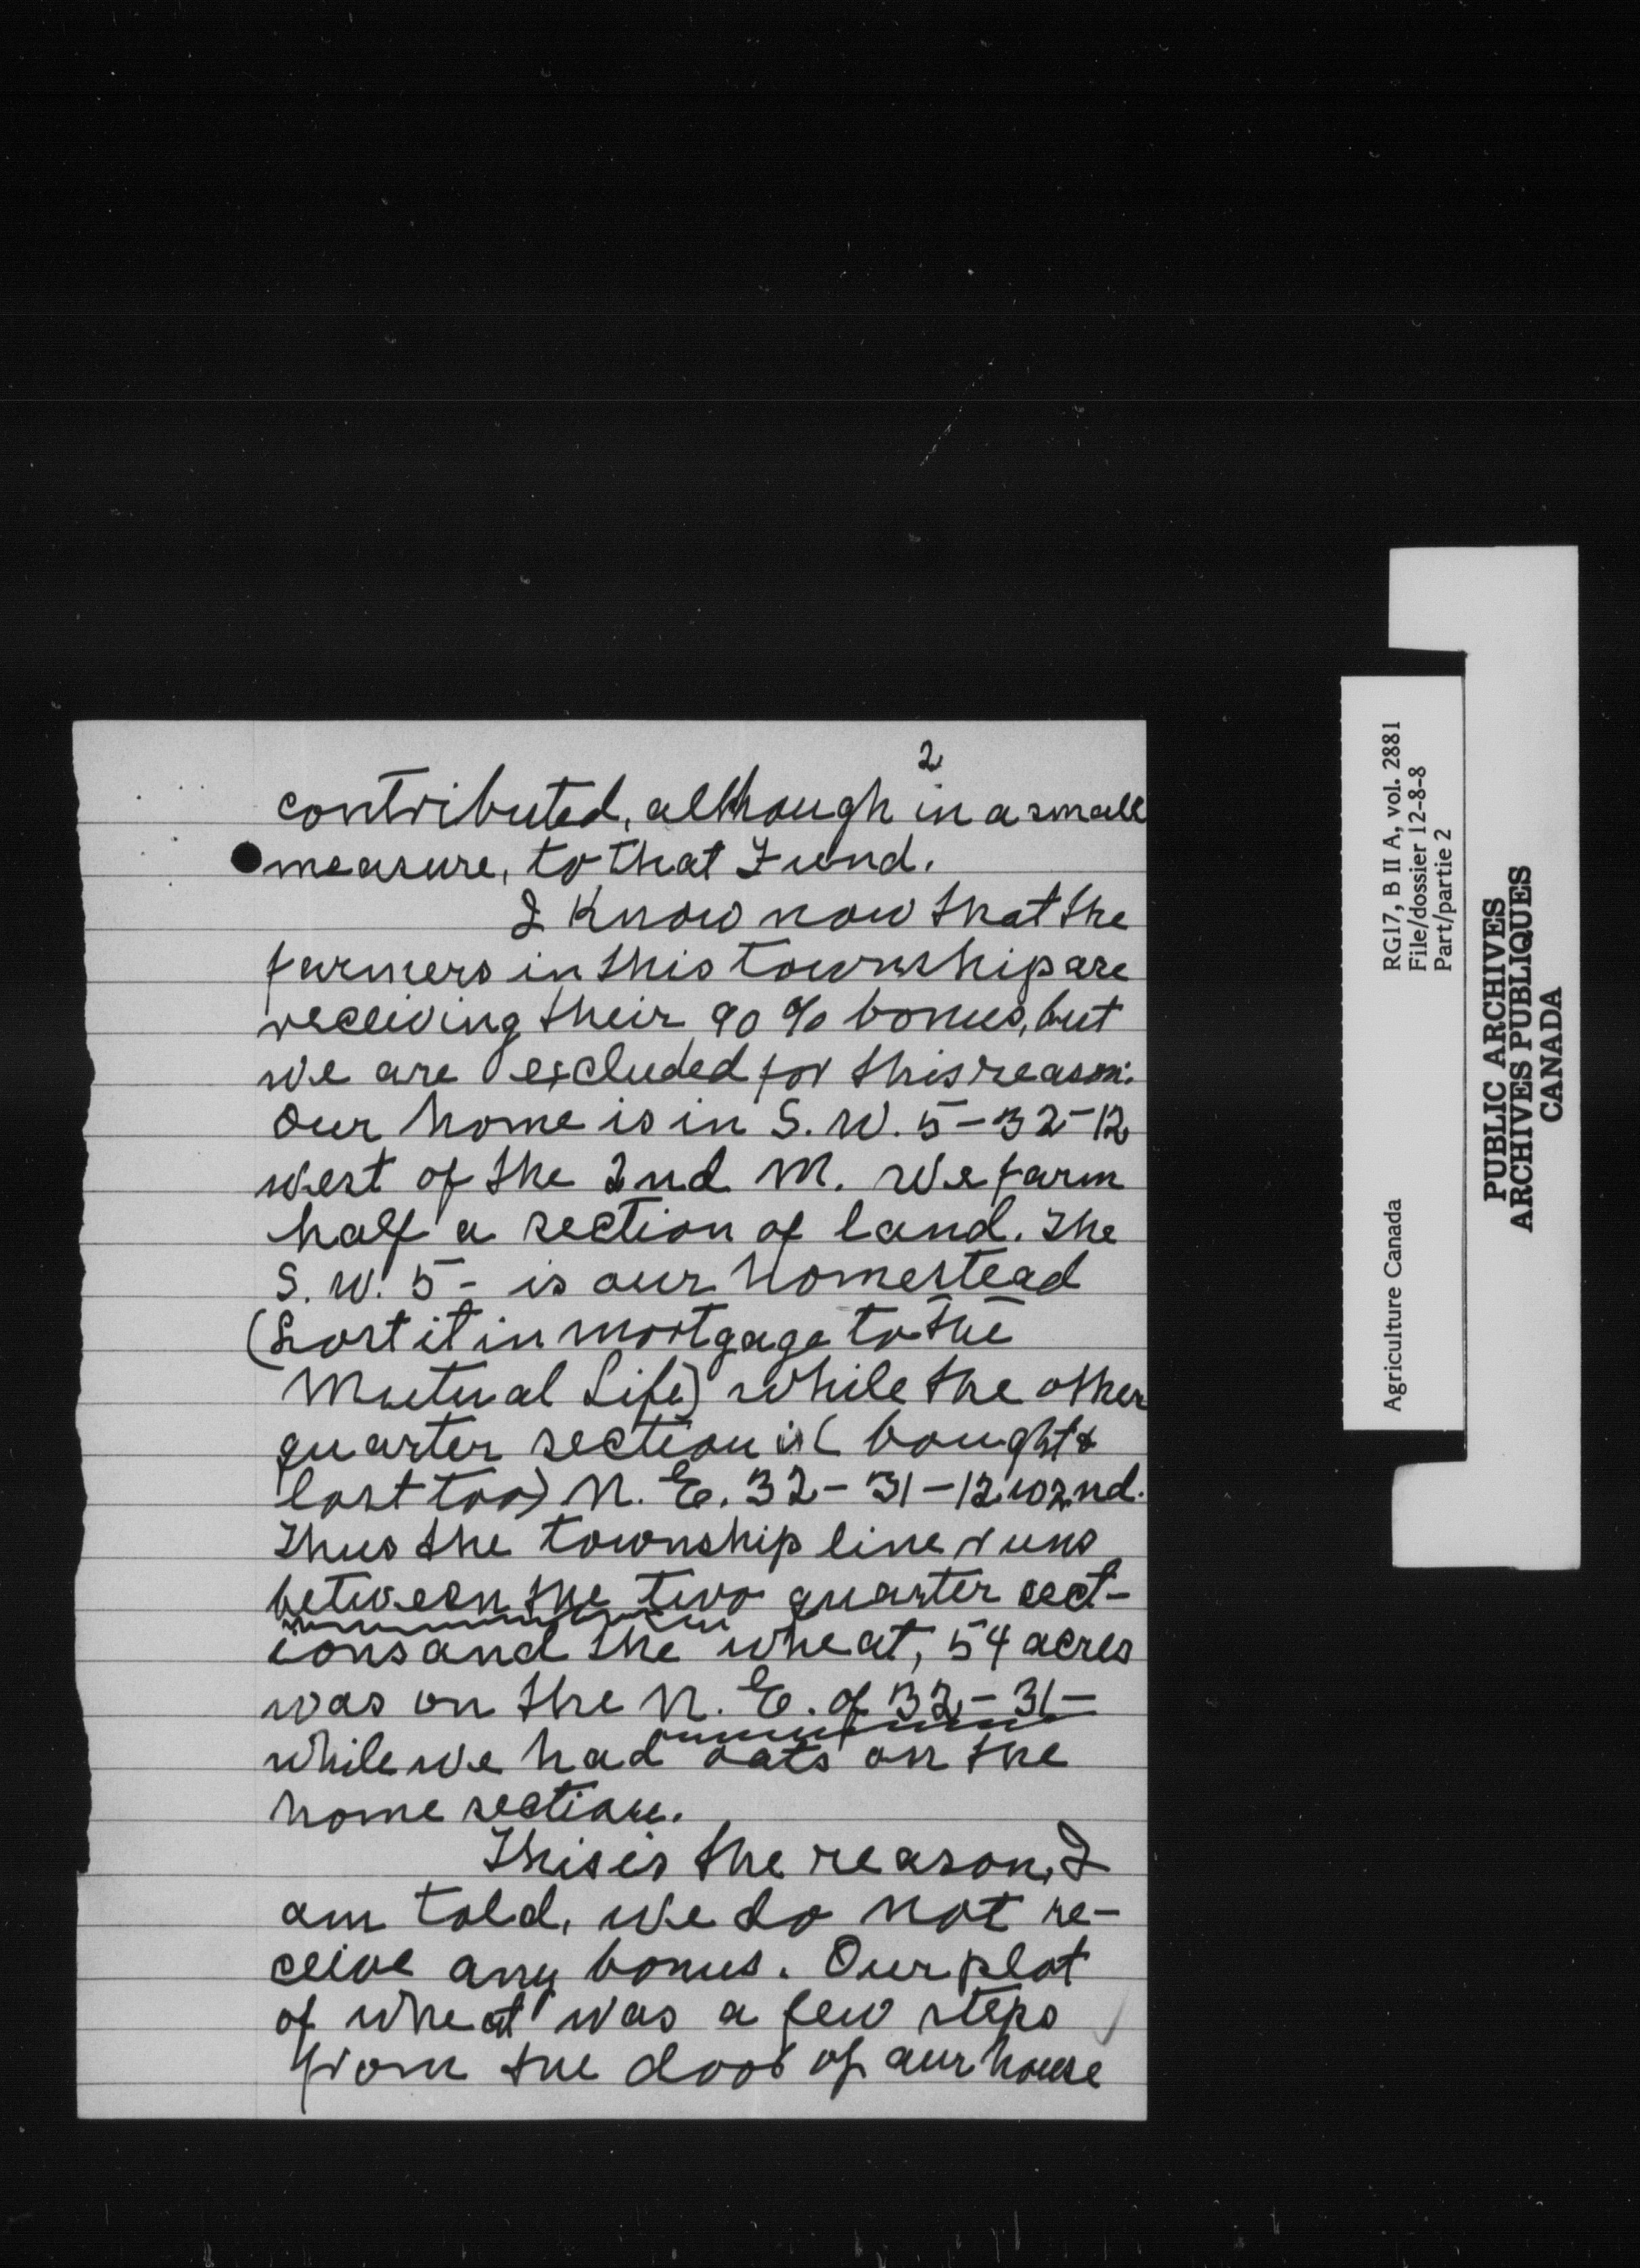 2
contributed, although in a small
measure, to that Fund.
I know now that the
farmers in this township are
receiving their 90% bonus, but
we are excluded for this reason:
Our home is in S. W. 5-32-12
west of the 2nd M. We farm
half a section of land. The
S. W. 5- is our homestead
(Lost it in mortgage to the
Mutual Life) while the other
quarter section is (bought &
lost too) N. E. 32-31-12 w 2nd.
Thus the township line runs
between the two quarter sect-
ions and the wheat, 54 acres
was on the N. E. of 32-31-
while we had oats on the
home section.
This is the reason, I
am told, we do not re-
ceive any bonus. Our plot
of wheat was a few steps
from the door of our house
Agriculture Canada
RG17, B II A, vol. 2881
File/dossier 12-8-8
Part/partie 2
PUBLIC ARCHIVES
ARCHIVES PUBLIQUES
CANADA